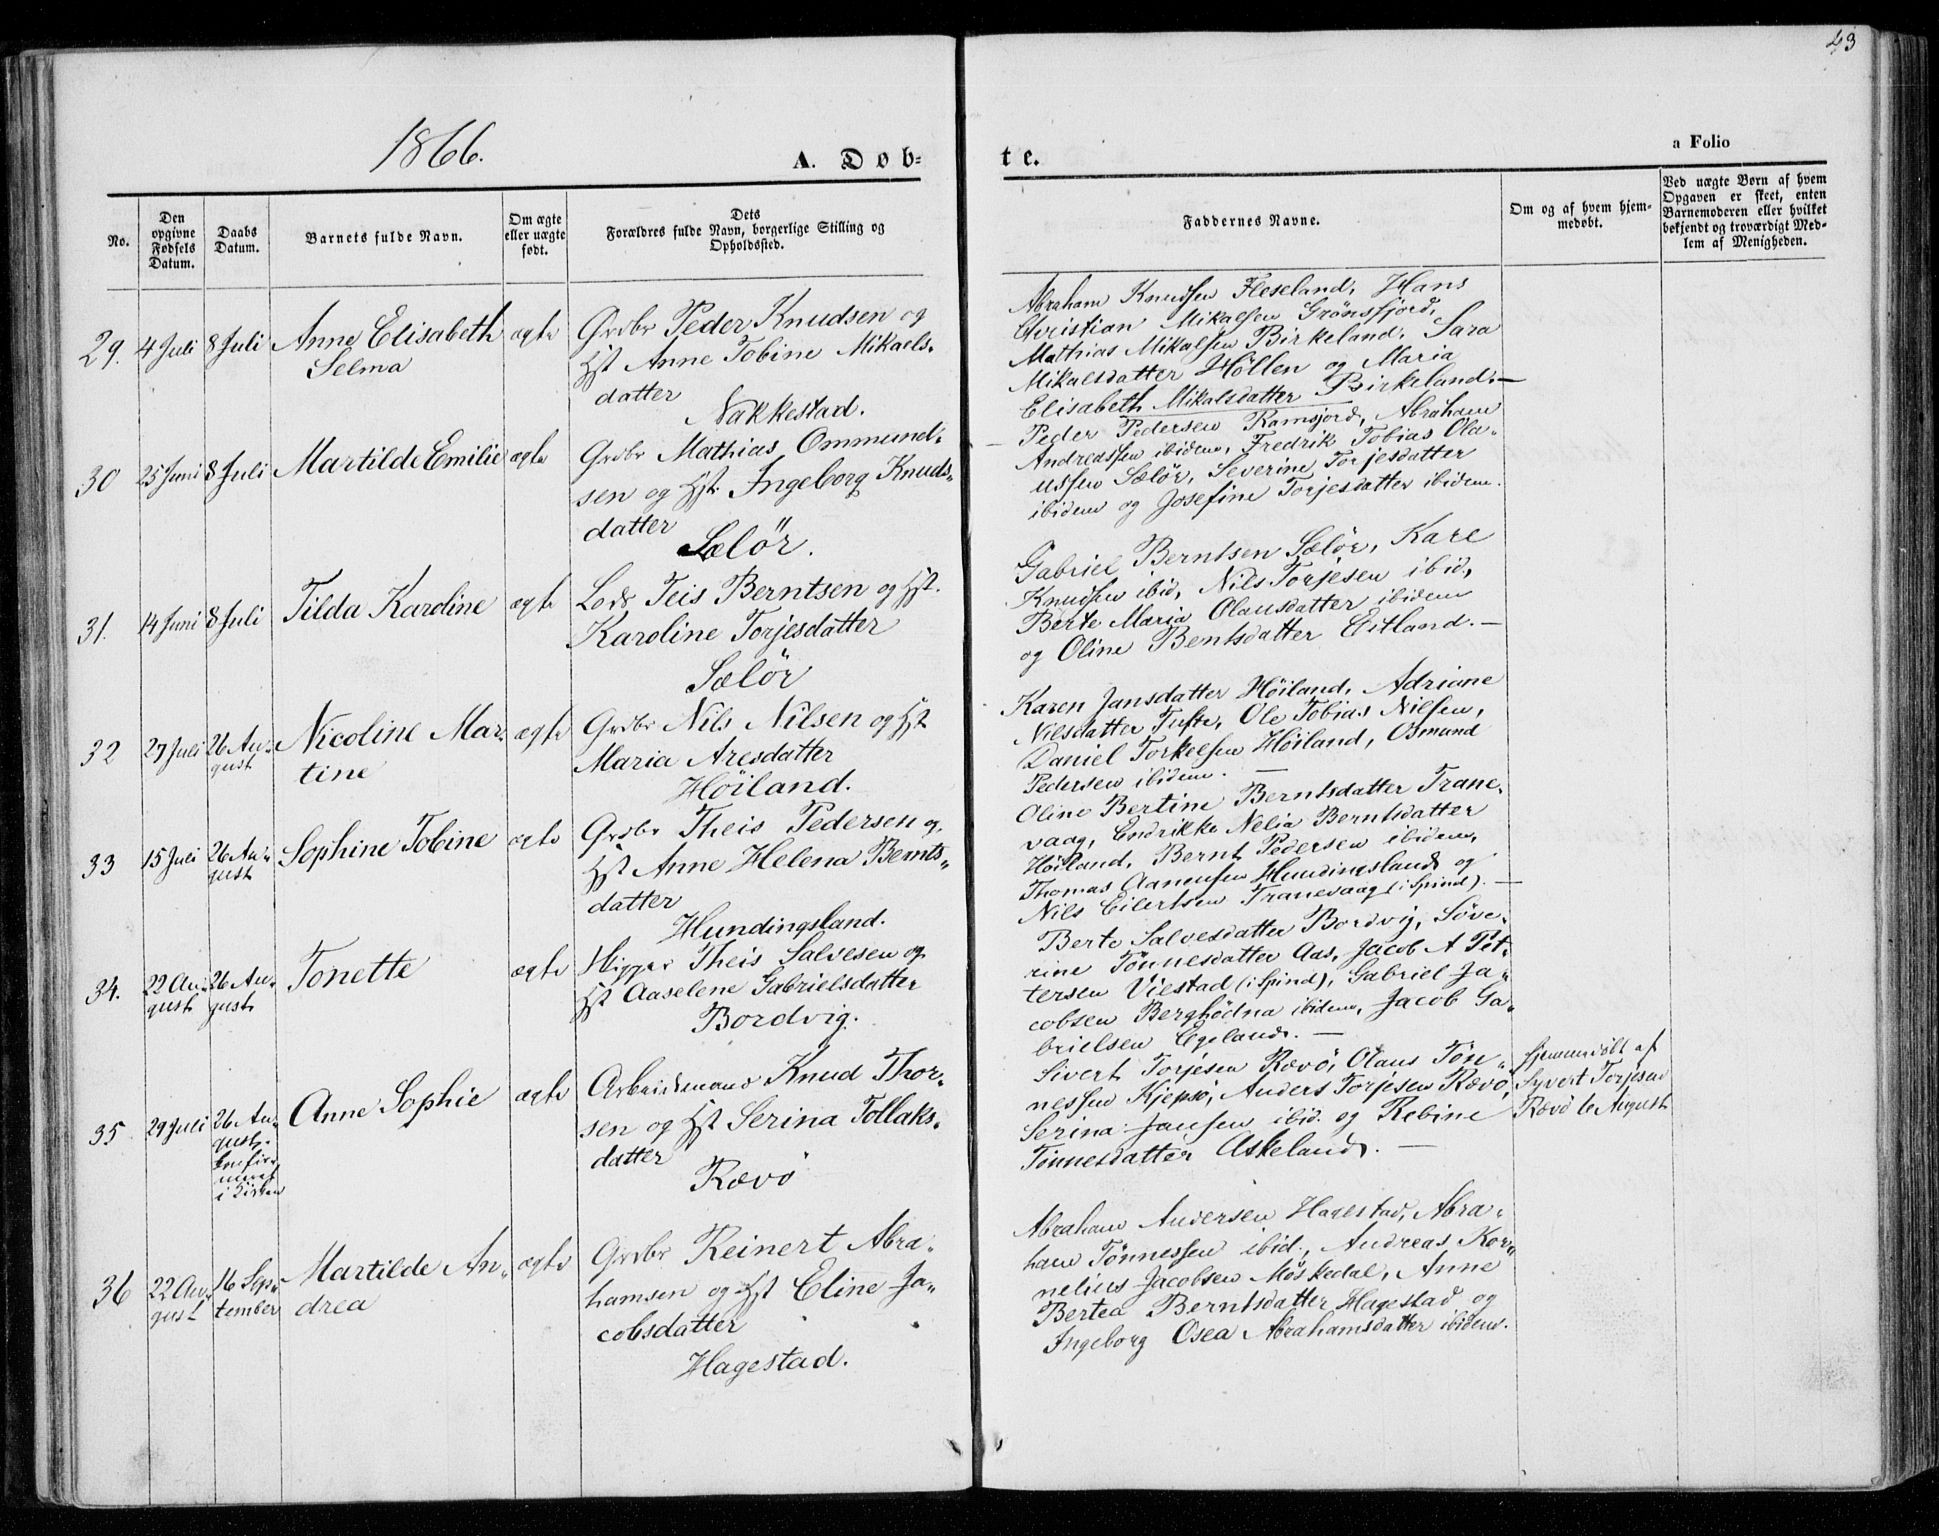 43
1866.
A. Døb-
te.
a Folio
No.
Den opgivne Fødsels Datum.
Daabs Datum.
Barnets fulde Navn.
Om ægte eller uægte født.
Dets Forældres fulde Navn, borgerlige Stilling og Opholdssted.
Faddernes Navne.
Om og af hvem hjemmedøbt.
Ved uægte Børn af hvem Opgaven er skeet, enten Barnemoderen eller hvilket bekjendt og troværdigt Medlem af Menigheden.
29. 4 Juli 8 Juli Anne Elisabeth ægte Grdbr Peder Knudsen og
Selma Hst Anne Tobine Mikaels-
datter
Nakkestad.
Abraham Knudsen Fleseland, Hans
Christian Mikalsen Grönsfjord,
Mathias Mikalsen Birkeland, Sara
Mikalsdatter Höllen og Maria
Elisabeth Mikalsdatter Birkeland.—
30 25 Juni 8 Juli Martilde Emilie ægte Grdbr Mathias Ommund-
sen og Hst. Ingeborg Knuds-
datter
Sælör.
Peder Pedersen Ramsjord, Abraham
Andreassen ibidem, Fredrik Tobias Ola-
ussen Sælör, Severine Torjesdatter
ibidem og Josefine Torjesdatter ibidem.
31. 14 Juni 8 Juli Tilda Karoline ægte Lods Teis Berntsen og Hst.
Karoline Torjesdatter
Sælör
Gabriel Berntsen Sælör, Kare
Knudsen ibid, Nils Torjesen ibid,
Berte Maria Olausdatter ibidem
og Oline Bentsdatter Eitland.—
32 27 Juli 26 Au- Nicoline Mar- ægte Grdbr Nils Nilsen og Hst
gust tine Maria Aresdatter
Höiland.
Karen Jansdatter Höiland, Adriane
Nilsdatter Tufte, Ole Tobias Nielsen,
Daniel Torkelsen Höiland, Osmund
Pedersen ibidem.—
33 15 Juli 26 Au- Sophine Tobine ægte Grdbr Theis Pedersen og
gust Hst Anne Helena Bernts-
datter
Hundingsland.
Oline Bertine Berntsdatter Trane-
vaag, Endrikke Nelia Berntsdatter
Höiland, Bernt Pedersen ibidem,
Thomas Aanensen Hundingsland og
Nils Eilertsen Tranevaag (i Spind).—
34. 22 Au- 26 Au- Tonette ægte Higger Theis Salvesen og
gust gust Hst Aaselene Gabrielsdatter
Bordvig.
Berte Salvesdatter Bordvig, Söve-
rine Tönnesdatter Aas, Jacob A Pet-
tersen Viestad (i Spind), Gabriel Ja-
cobsen Berghödna ibidem, Jacob Ga-
brielsen Egeland.—
35. 29 Juli 26 Au- Anne Sophie ægte Arbeidsmand Knud Thor-
gust. sen og Hst Serina Tollaks-
datter
i Kirken
Rævö
Sivert Torjesen Rævö, Olaus Tön-
nessen Kjepsö, Anders Torjesen Rævö,
Serina Jansen ibid. og Rebine
Tönnesdatter Askeland.—
Hjemmedöbt af
Syvert Torjesen
Rævö 6 August
36 22 Au- 16 Sep- Martilde An- ægte Grdbr Reinert Abra-
gust tember drea hamsen og Hst Eline Ja-
cobsdatter
Hagestad.
Abraham Andersen Hagestad, Abra-
ham Tönnessen ibid., Andreas Kor-
nelius Jacobsen Möskedal, Anne
Bertea Berntsdatter Hagestad og
Ingeborg Osea Abrahamsdatter ibidem.